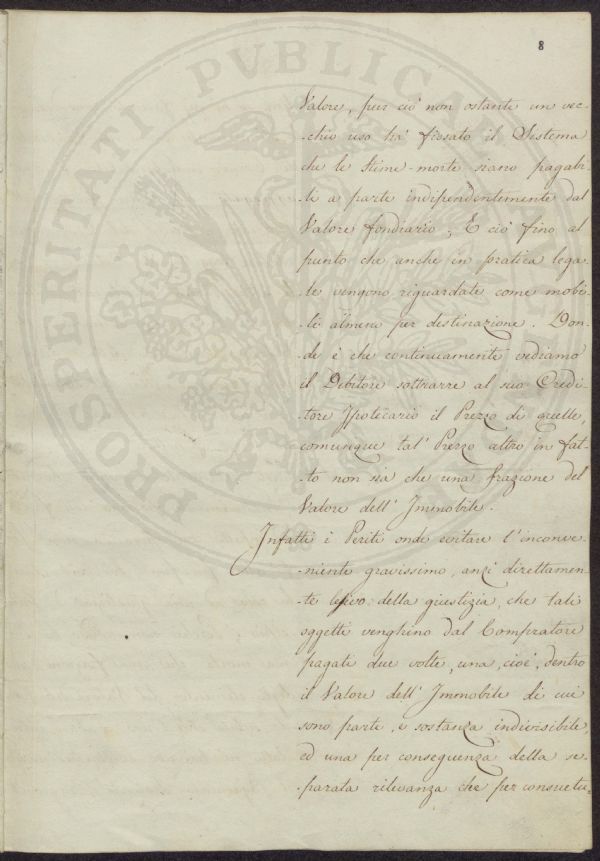 8
Valore, pur ciò non ostante un vec-
-chio uso ha' fissato il Sistema
che le stime-morte siano pagabi-
-li a parte indipendentemente dal
Valore fondiario; E ciò fino al
punto che anche in pratica lega-
-le vengono riguardate come mobi-
-li almeno per destinazione. Don-
-de è che continuamente vediamo
il Debitore sottrarre al suo Credi-
-tore Ipotecario il Prezzo di quelle,
comunque tal' Prezzo altro in fat-
-to non sia che una frazione del
Valore dell' Immobile.
Infatti i Periti onde evitare l'inconve-
-niente gravissimo, anzi direttamen-
-te lesivo della giustizia, che tali
oggetti venghino dal Compratore
pagati due volte, una, cioè, dentro
il Valore dell' Immobile di cui
sono parte, e sostanza indivisibile,
ed una per conseguenza della se-
-parata rilevanza che per consuetu-
PROSPERITATI PVBLICAE